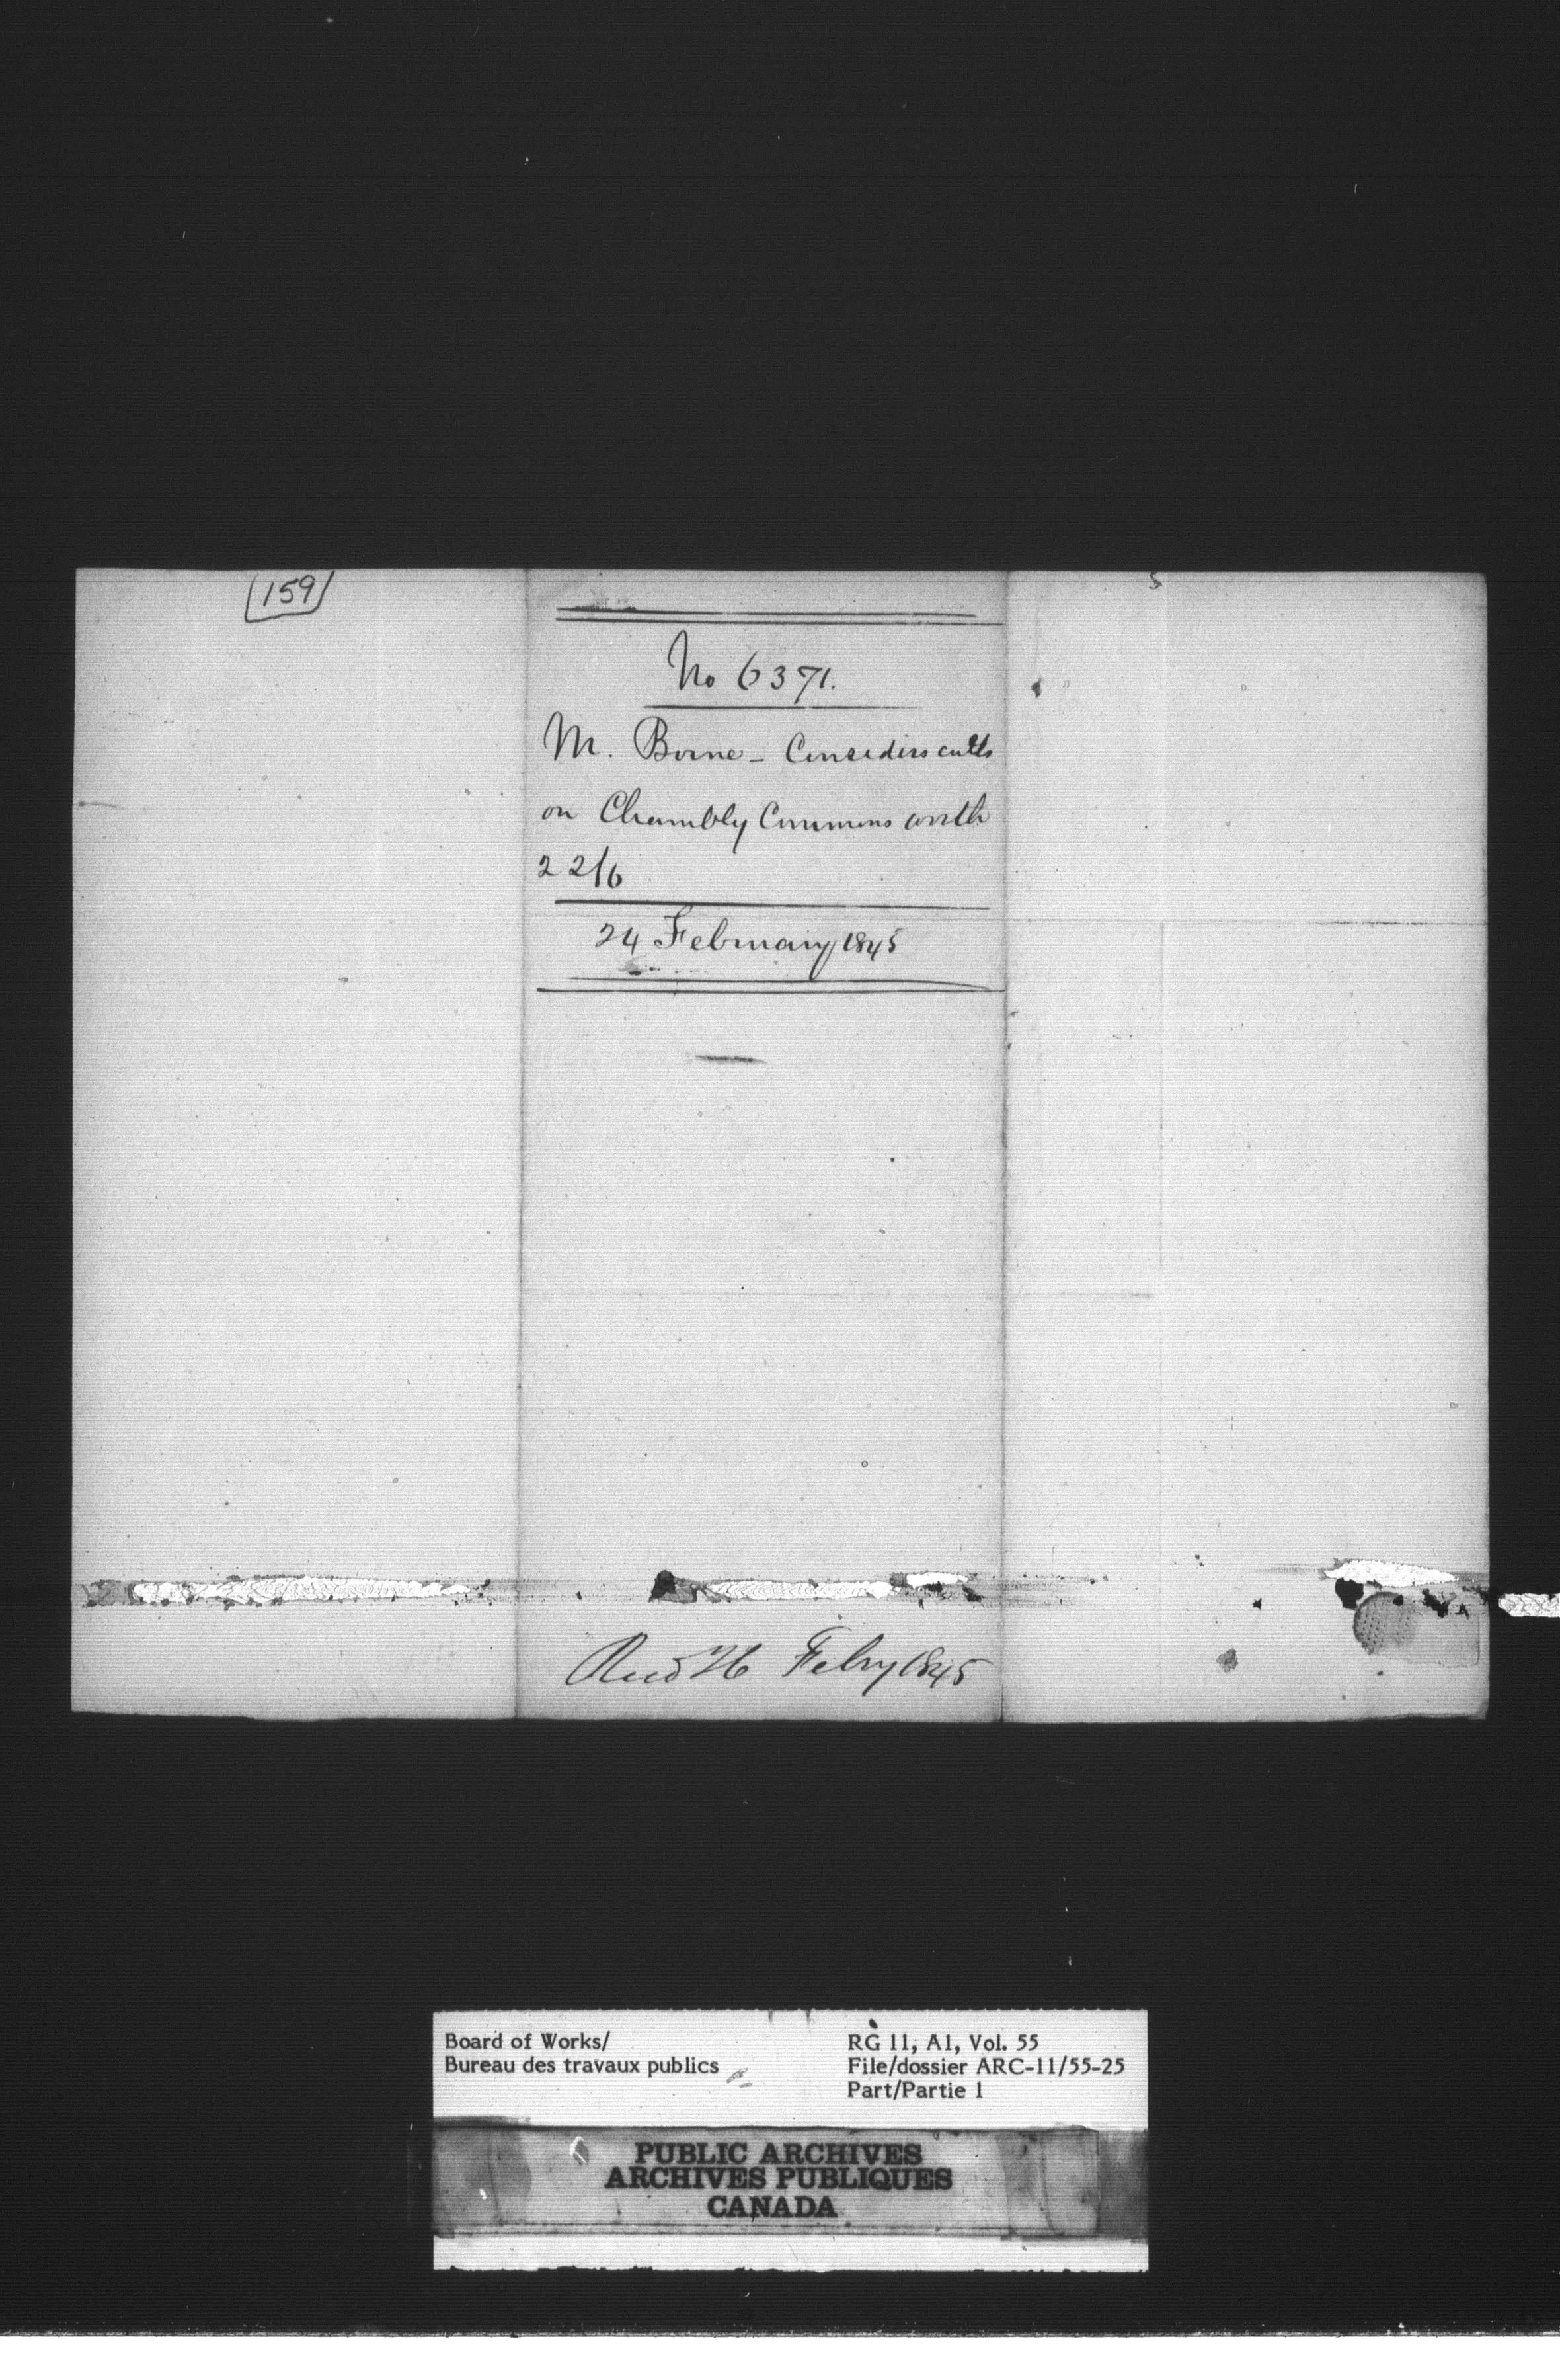 159
5
No 6371.
M. Borne - Considers culls
on Chambly Commons worth
22/6
24 February 1845
Recd 26 Feby 1845
Board of Works/
Bureau des travaux publics
RG 11, A1, Vol. 55
File/dossier ARC-11/55-25
Part/Partie 1
PUBLIC ARCHIVES
ARCHIVES PUBLIQUES
CANADA